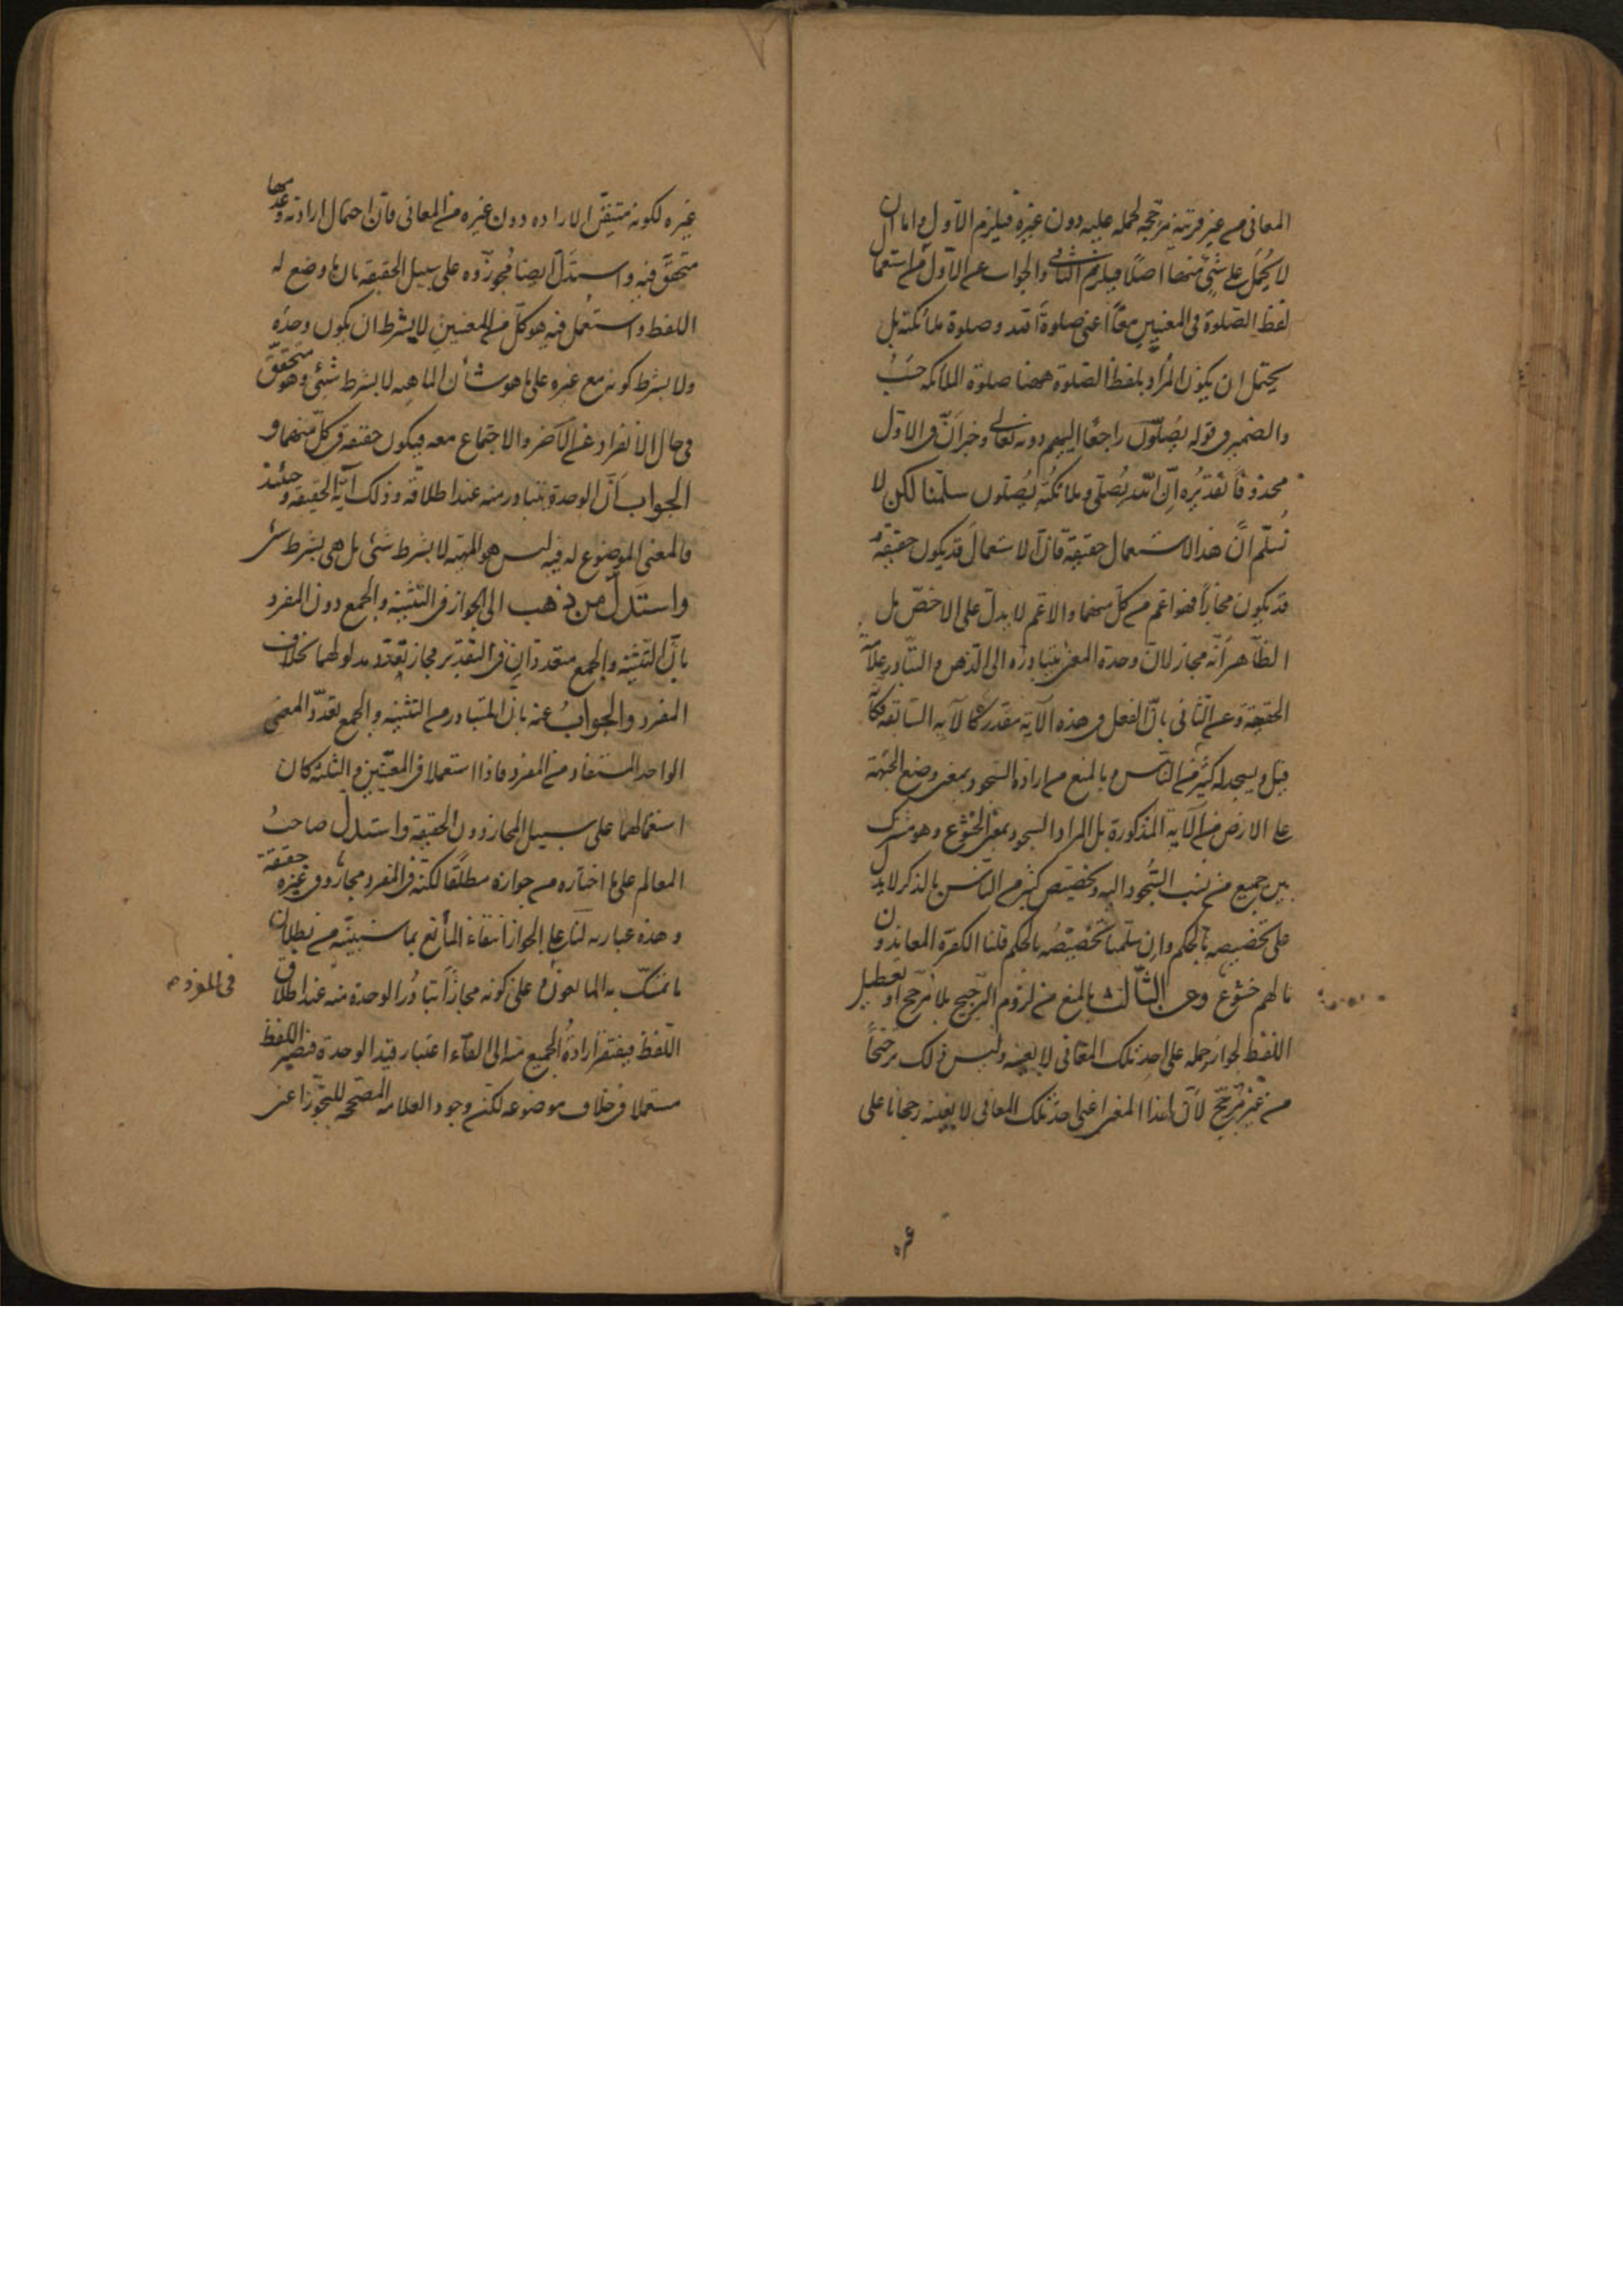 المعانى من غير قرينة مرجحة لحمله عليه دون غيره فيلزم الاول واما ان
لا يُحمَل على شئ منها اصلاً فيلزم الثانى والجواب عن الاول أن استعمال
لفظ الصّلوة فى المعنيين معًا اعنى صلوة الله وصلوة ملائكته بل
يحتمل ان يكون المراد بلفظ الصّلوة ههنا صلوة الملائكه حَسْبُ
والضمير فى قوله يُصَلّون راجعًا اليهم دونه تعالى وخبر اَنّ فى الاول
محذوفًا تقديرُه اِنّ اللّه يُصَلّى وملائكتُه يُصَلّون سلّمنا لكن لا
نُسلّم انّ هذا الاستعمال حقيقة فانّ الاستعمالَ قد يكون حقيقةً و
قد يكون مجازًا فهو اعم من كلّ منهما والاعم لا يدلّ على الاخصّ بل
الظّاهر اَنّه مجاز لانّ وحدة المعنى يتبادره الى الذهن والتبادر علامة
الحقيقة وعن الثّانى بانّ الفعل فى هذه الآية مقدر كالآيه السّابقة فكأنه
قيل ويسجد له كثير من النّاس وبالمنع من ارادة السّجود بمعنى وضع الجبهة
على الارض من الآية المذكورة بل المراد السجود بمعنى الخشوع وهو مشترك
بين جميع من نسب السّجود اليه وتخصيص كثير من النّاس بالذكر لا يدل
على تخصيصه بالحكم وان سلّمنا تخصيصُه بالحكم قلنا الكفرة المعاندون
ما لهم خشوع وعن الثّالث بالمنع من لزوم الترجيح بلا مرجّح او تعطيل
اللّفظ لجواز حمله على احد تلك المعانى لا بعينه وليس ذلك ترجيحاً
من غير مُرجّح لأنّ لهذا المعنى اعنى احد تلك المعانى لا بعينه رجحانا على
غيره
غيره لكونه متيقّن الاراده دون غيره من المعانى فانّ احتمال ارادته وعدمها
متحقّق فيه واستدلّ ايضا مُجوّزوه على سبيل الحقيقه بان ما وضع له
اللفظ واستعمل فيه هو كلّ من المعنيين لا بشرط ان يكون وحدَه
ولا بشرط كونه مع غيره على ما هو شأن الماهيه لا بشرط شئ وهو متحقّق
فى حال الانفراد عن الآخر والاجتماع معه فيكون حقيقة فى كلّ منهما و
الجواب اَنّ الوحدة يتبادر منه عند اطلاقه وذلك آية الحقيقة وحينئذ
فالمعنى الموضوع له فيه ليس هو المهيّة لا بشرط شئ بل هى بشرط شئ
واستدلّ من ذهب الى الجواز فى التثنية والجمع دون المفرد
بانّ التثنية والجمع متعددان فى التقدير فجاز تعدّد مدلولهما بخلاف
المفرد والجوابُ عنه بانّ المتبادر من التثنية والجمع تعدّد المعنى
الواحد المستفاد من المفرد فاذا استعملا فى المعنيين والثلثة كان
استعمالهما على سبيل المجاز دون الحقيقة واستدلّ صاحبُ
المعالم على ما اختاره من جوازه مطلقًا لكنّه فى المفرد مجاز وفى غيره حقيقة
وهذه عبارته لنا على الجواز انتفاء المانع بما سنبيّنه من بطلان
ما تمسّك به المانعون وعلى كونه مجازًا تبادُر الوحدة منه عند اطلاق
فى المفرد
اللّفظ فيفتقر ارادةُ الجميع منه الى الغاء اعتبار قيد الوحدة فيصير اللفظ
مستعملا فى خلاف موضوعه لكن وجود العلاقة المصحّحة للتجوّز اعنى